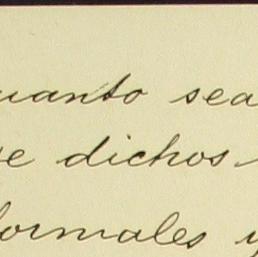 uanto sea
e dichos
formales y